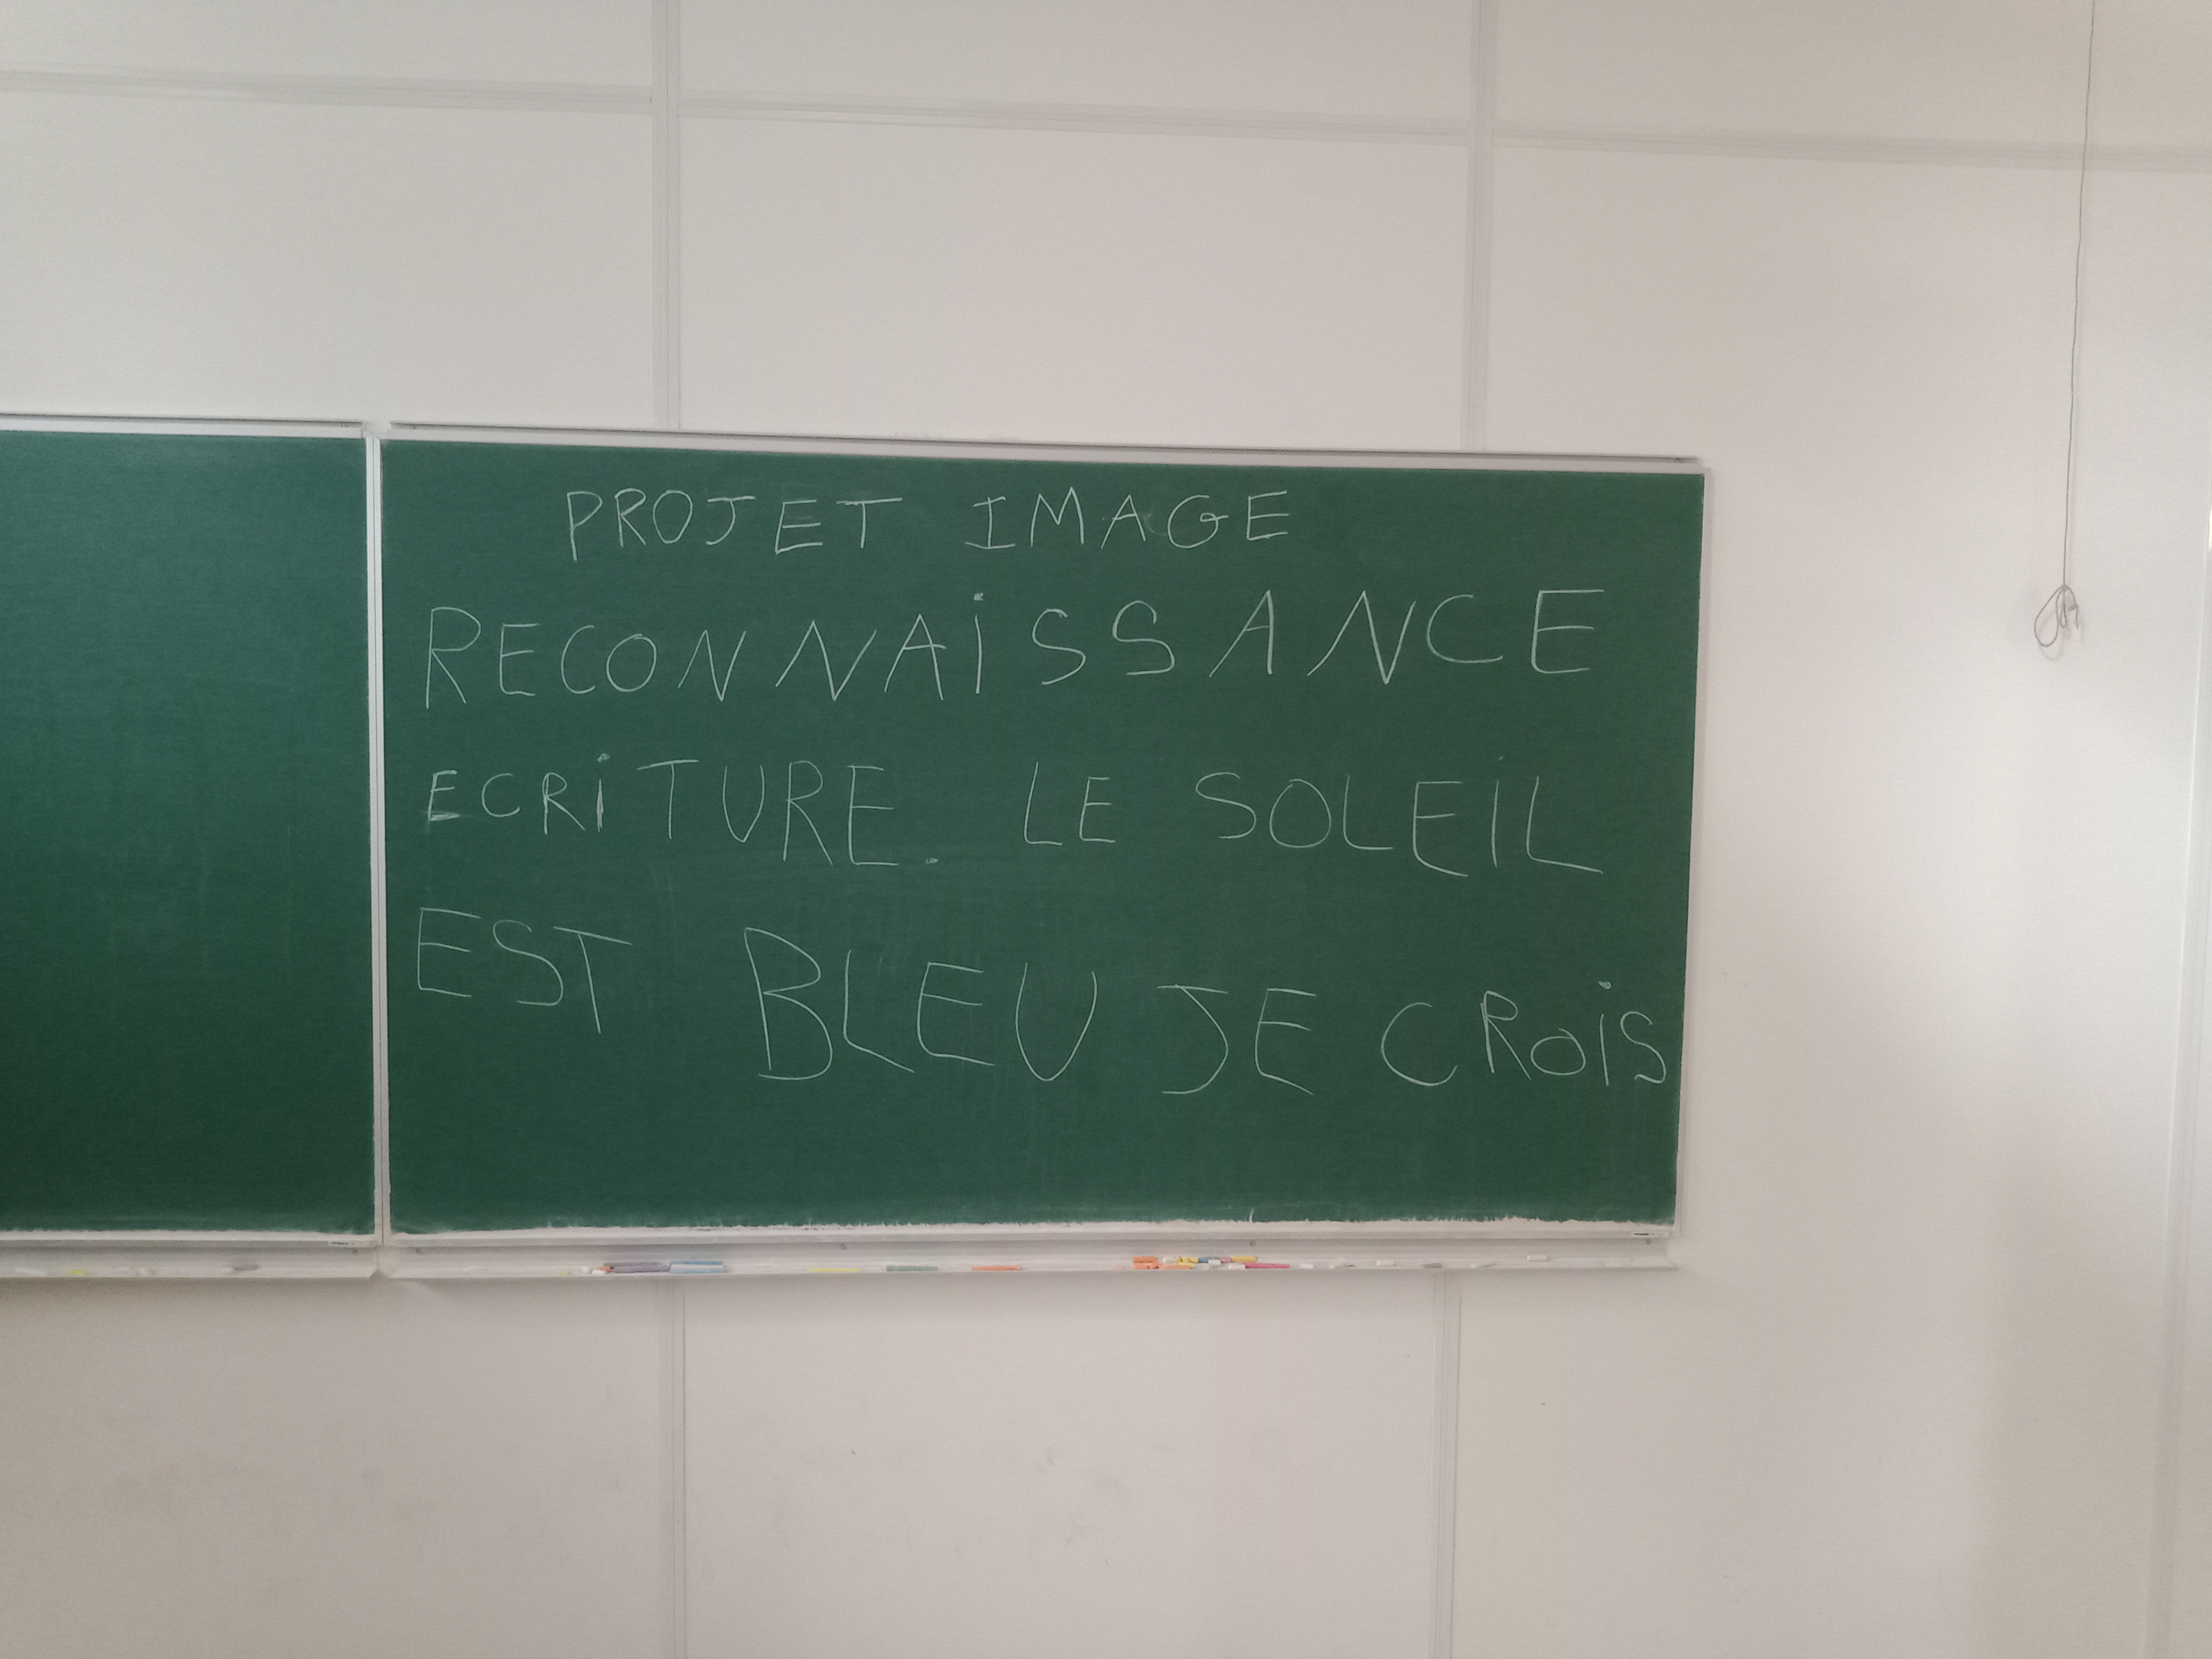 PROJET IMAGE
RECONNAiSSANCE
ECRiTURE. LE SOLEiL
EST BLEU JE CROiS